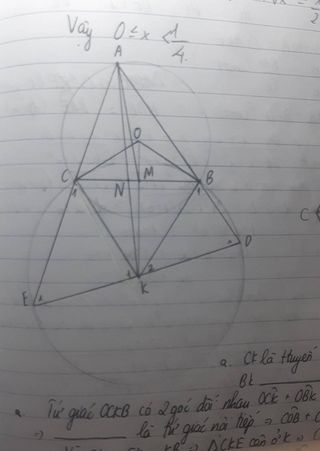 Vậy 0 ≤ x < 1/4.
A
O
C
M
B
N
1
1
D
1 2
K
E
C
a. CK là tiếp tuyến
BK
a. Tứ giác OCKB có 2 góc đối nhau OĈK + OB̂K
⇒ là tứ giác nội tiếp ⇒ CÔB +
⇒ ΔCKE cân ở K ⇒